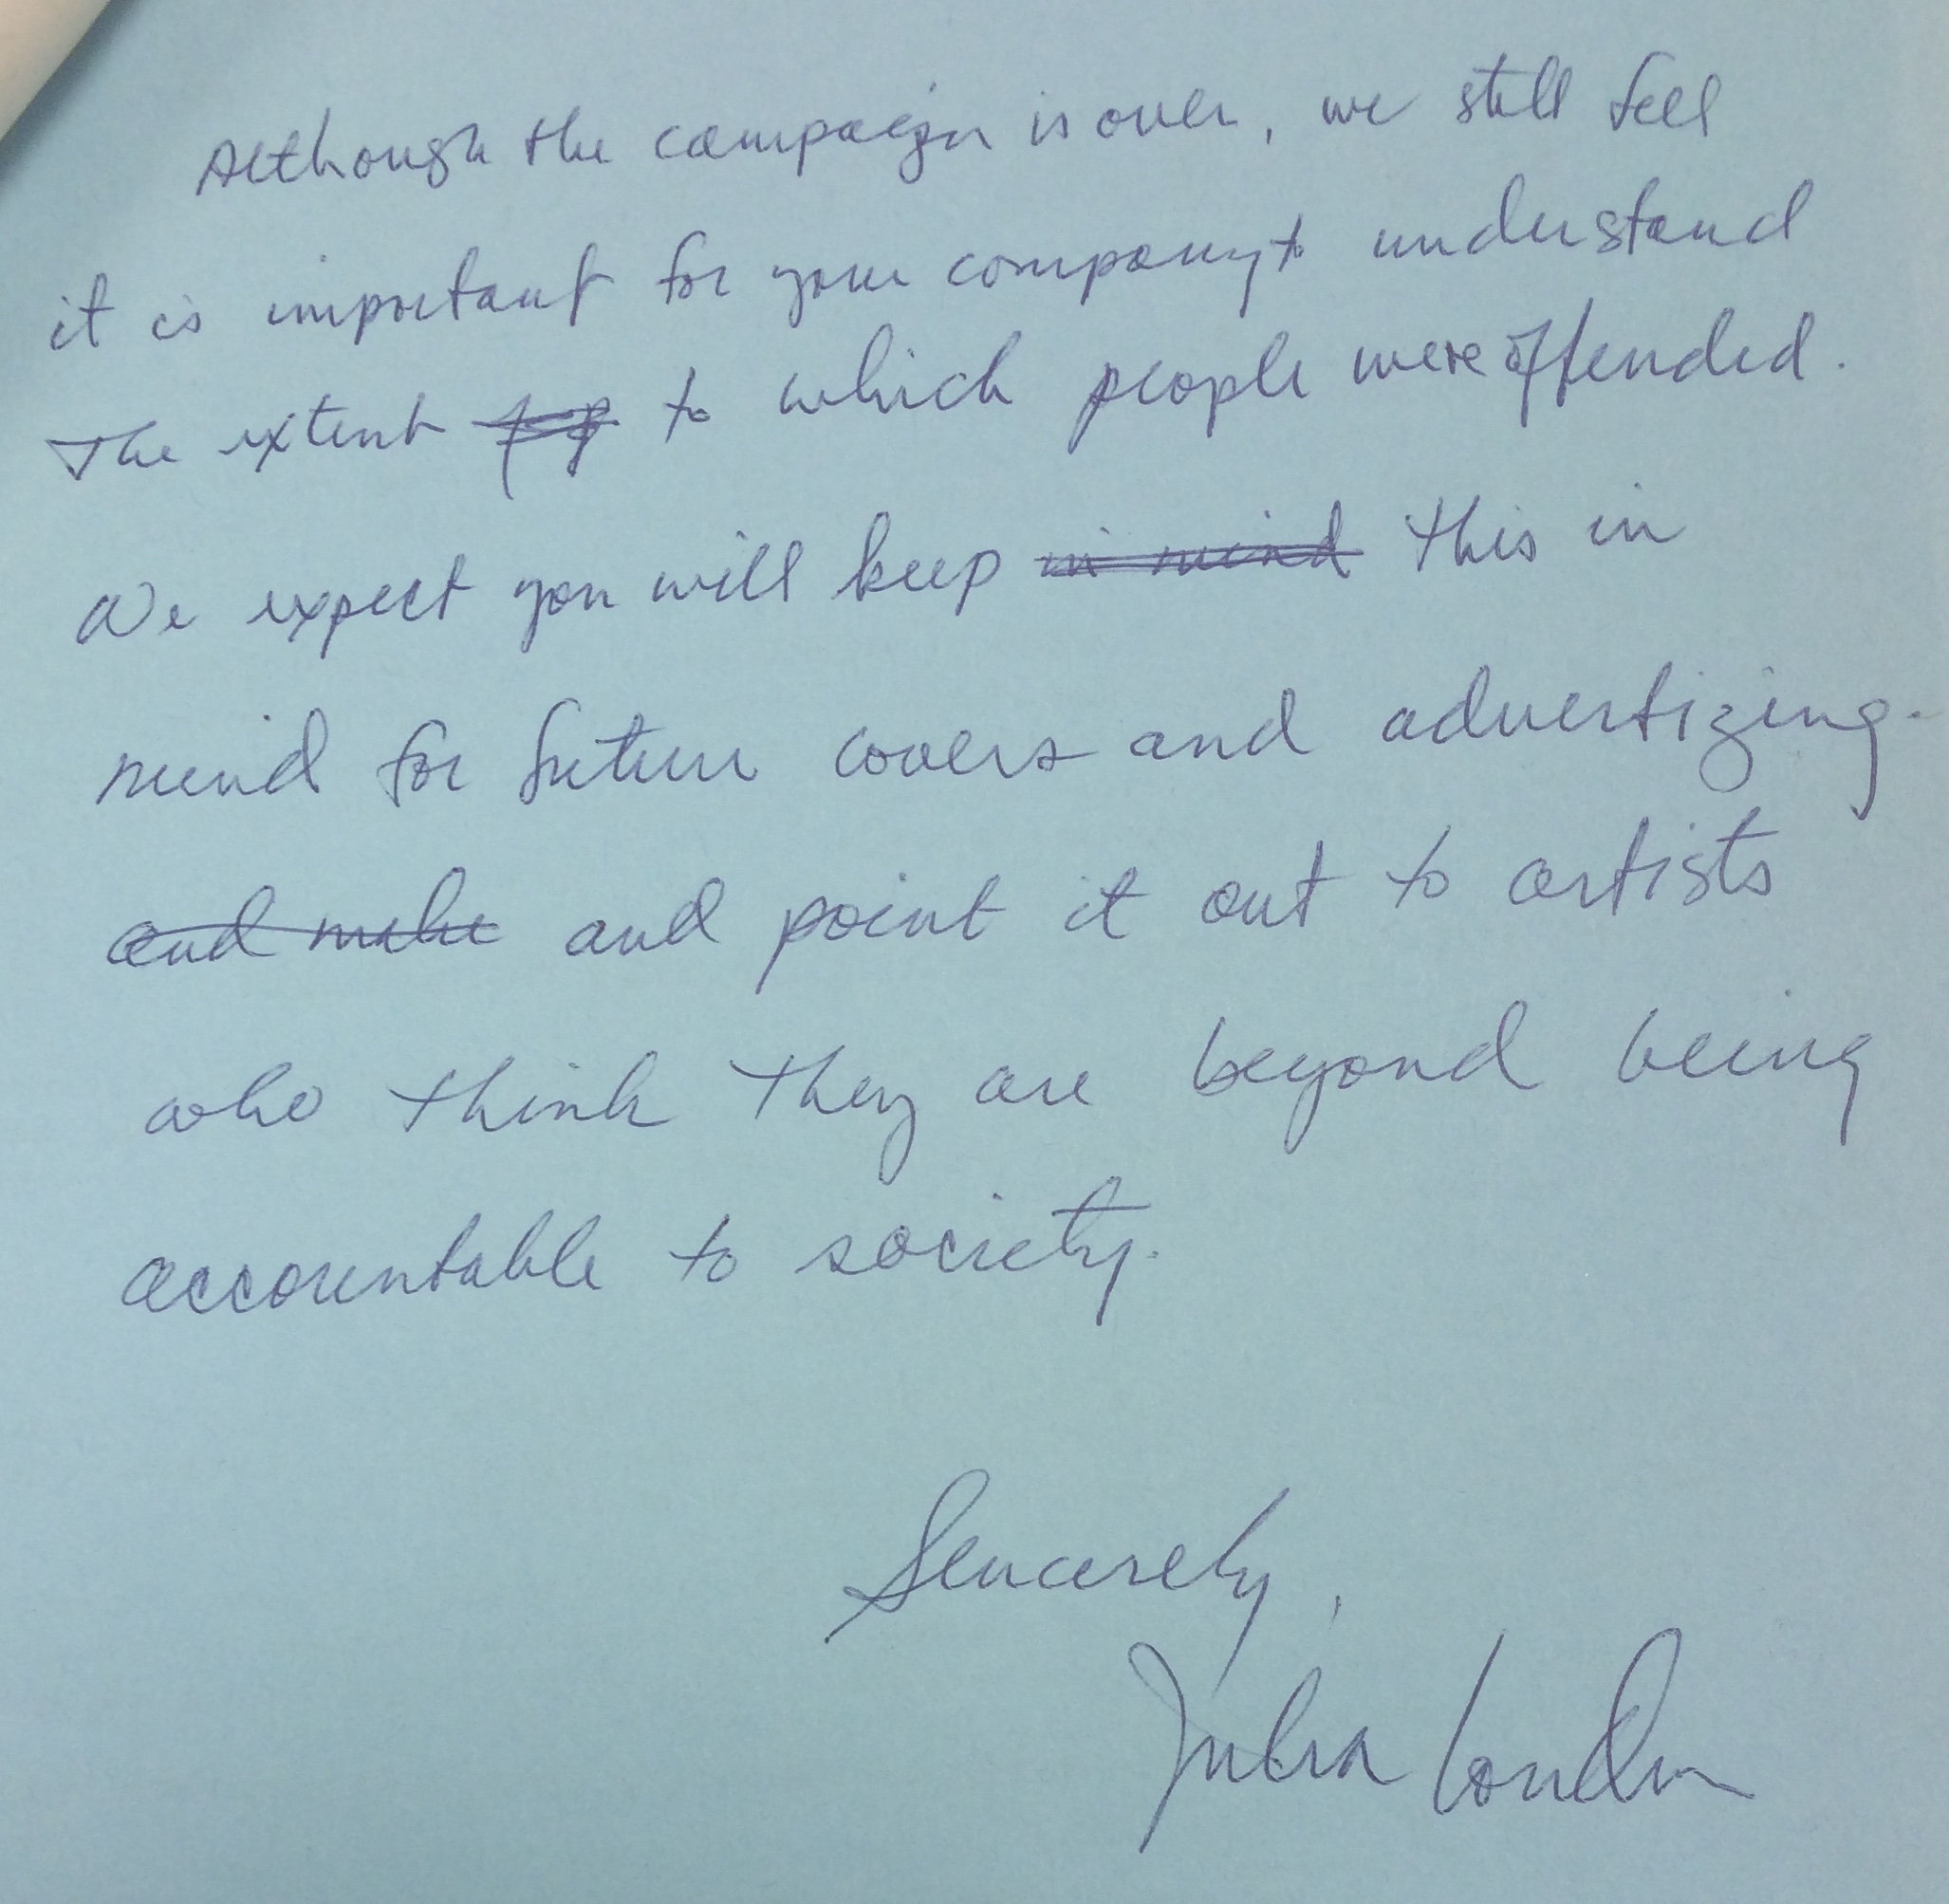 Although the campaign is over, we still feel
it is important for your company to understand
The extent to which people were offended.
We expect you will keep in mind this in
mind for future covers and advertizing.
and make and point it out to artists
who think they are beyond being
accountable to society.
Sincerely,
Julia London